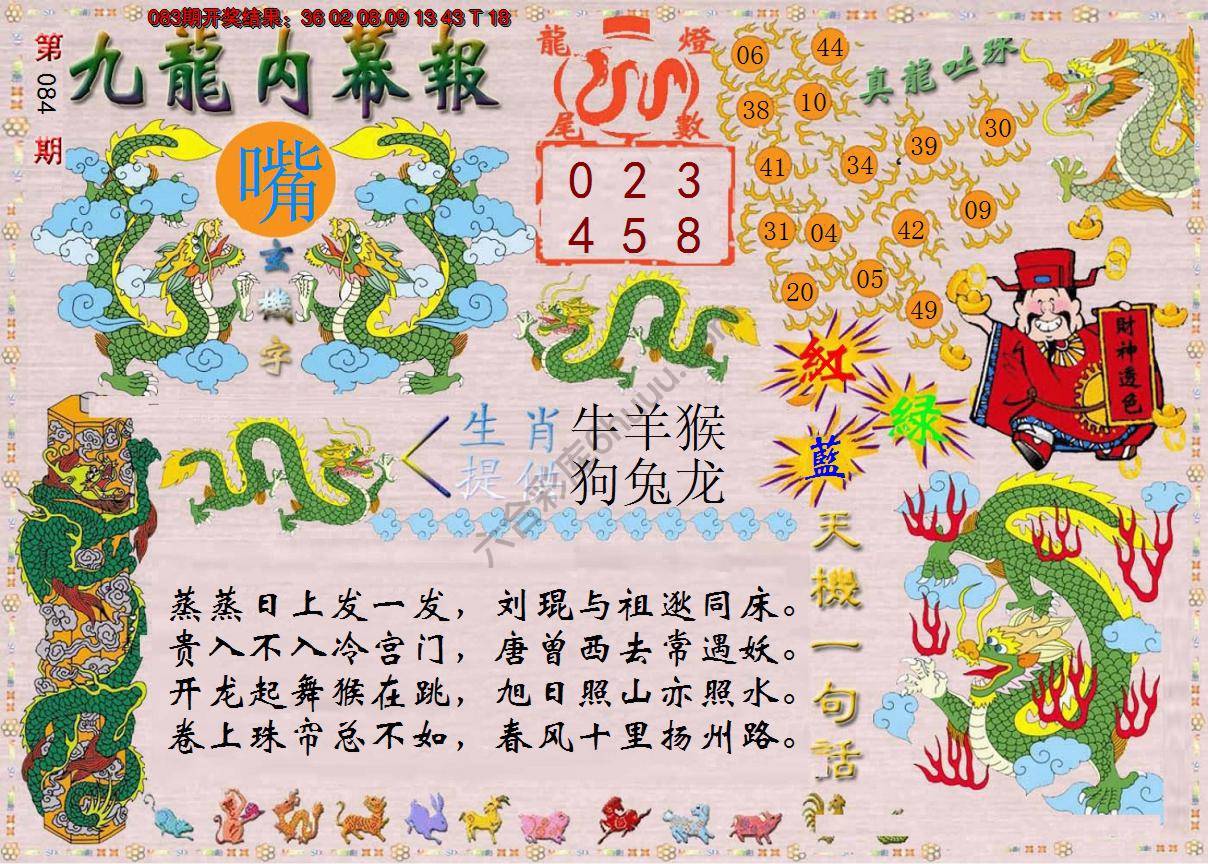 083期开奖结果：36 02 08 09 13 43 T 18
第
084
期
九龍内幕報
嘴
玄
機
字
龍燈
尾數
0 2 3
4 5 8
真龍吐珠
06
44
38
10
41
34
39
30
31
04
42
09
20
05
49
財神透色
紅
綠
藍
生肖
提供
牛羊猴
狗兔龙
六合彩库6huuu.com
天機一句話
蒸蒸日上发一发，刘琨与祖逖同床。
贵入不入冷宫门，唐曾西去常遇妖。
开龙起舞猴在跳，旭日照山亦照水。
卷上珠帘总不如，春风十里扬州路。